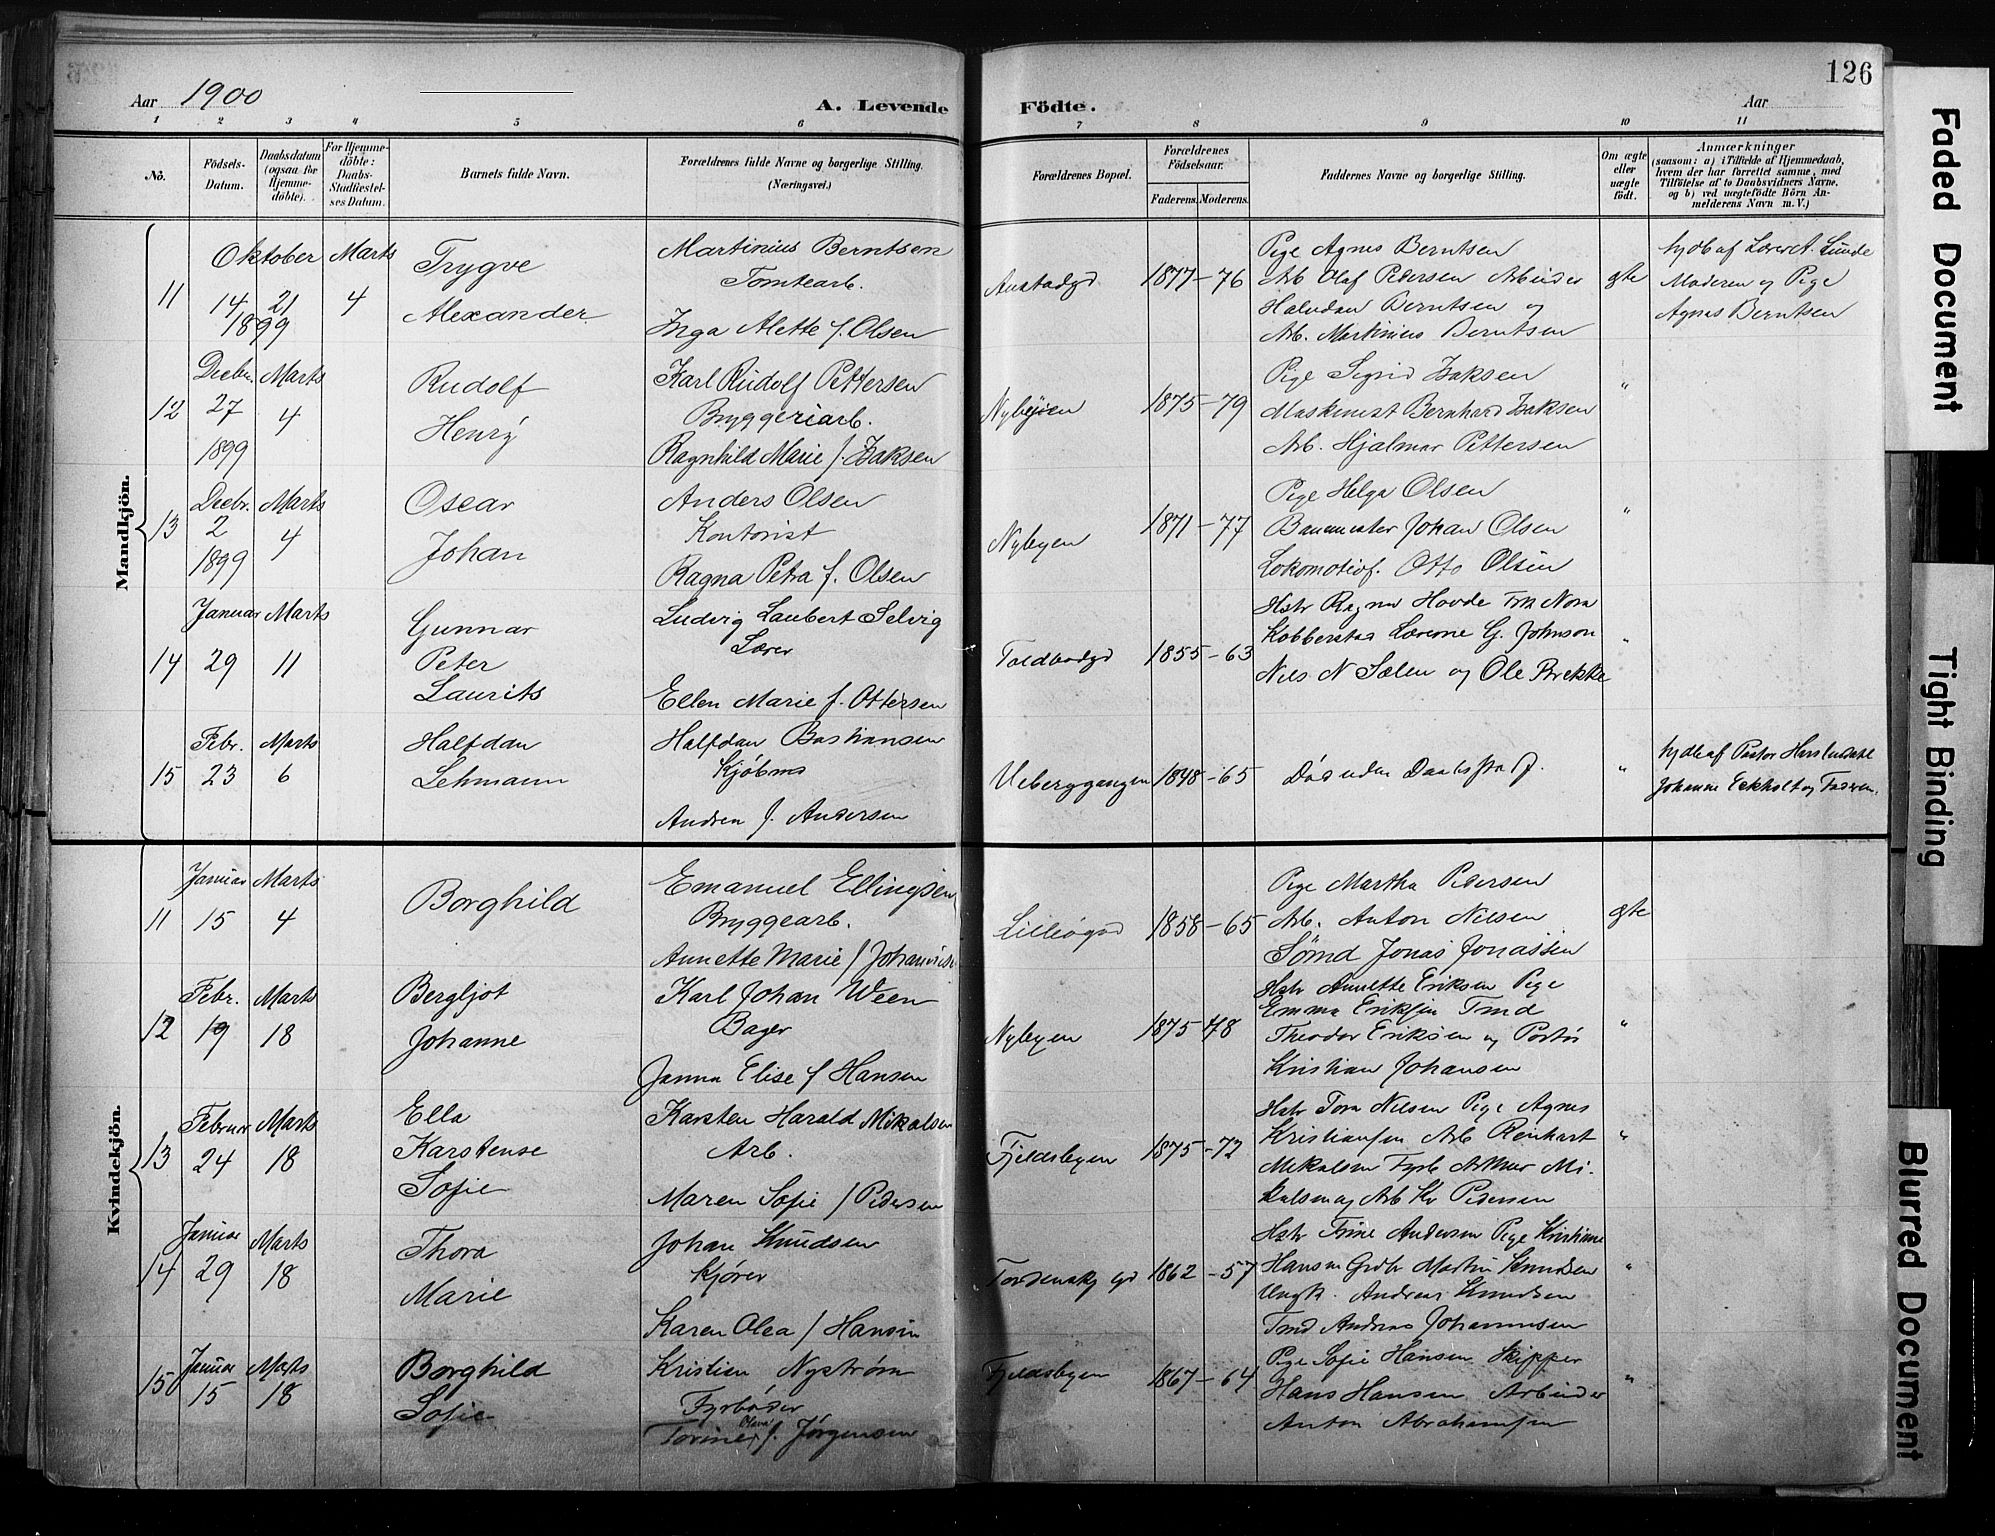 126
Aar 1900
A. Levende Födte.
Aar
1 2 3 4 5 6 7 8 9 10 11
No.
Födsels-Datum.
Daabsdatum (ogsaa for Hjemme-döbte).
For Hjemme-döbte: Daabs-Stadfæstel-ses Datum.
Barnets fulde Navn.
Forældrenes fulde Navne og borgerlige Stilling.
(Næringsvei.)
Forældrenes Bopæl.
Forældrenes Födselsaar.
Faderens. Moderens.
Faddernes Navne og borgerlige Stilling.
Om ægte eller uægte födt.
Anmærkninger
(saasom: a) i Tilfælde af Hjemmedaab,
hvem der har forrettet samme, med
Tilföielse af to Daabsvidners Navne,
og b) ved uægtefödte Börn An-
melderens Navn m. V.)
Mandkjön.
11
Oktober Marts
14 21 4
1899
Trygve
Alexander
Martinius Berntsen
Tomtearb.
Inga Alette f. Olsen
1877-76
Pige Agnes Berntsen
Arb Olaf Pedersen Arbeider
Halvdan Berntsen og
Arb. Martinius Berntsen
gte
hjdb af Lærer A. Lunde
Moderen og Pige
Agnes Berntsen
12
Decbr. Marts
27 4
1899
Rudolf
Henry
Karl Rudolf Pettersen
Bryggeriarb.
Ragnhild Marie f. Isaksen
Nybyen
1875-79
Pige Sigrid Isaksen
Maskinist Bernhard Isaksen
Arb. Hjalmar Pettersen
"
13
Decbr. Marts
2 4
1899
Oscar
Johan
Anders Olsen
Kontorist
Ragna Petra f. Olsen
Nybyen
1871-77
Pige Helga Olsen
Banemester Johan Olsen
Lokomotivf. Otto Olsen
"
14
Januar Marts
29 11
Gunnar
Peter
Laurits
Ludvig Laubert Selvig
Lærer
Ellen Marie f. Ottersen
Toldbodgd
1855-63
Hstr Ragna Hovde Frk Nora
Kobberstad Lærerne G. Johnson
Nils N Sælen og Ole Brekke
"
15
Febr. Marts
23 6
Halfdan
Lehmann
Halfdan Bastiansen
Kjøbmd
Andrea f. Andersen
Ueberggangen
1848-65
Død uden Daabsstadf.
"
hjdb af Pastor
Johanne Eckholt og Faderen.
Kvindekjön.
11
Januar Marts
15 4
Borghild
Emanuel Ellingsen
Bryggearb.
Annette Marie f Johannes
Lilleøgd
1858-65
Pige Martha Pedersen
Arb. Anton Nilsen
Sømd Jonas Jonassen
gte
12
Febr. Marts
19 18
Bergljot
Johanne
Karl Johan Ween
Bager
Janna Elise f Hansen
Nybyen
1875-78
Hstr Annette Eriksen Pige
Emma Eriksen Tmd
Theodor Eriksen og Portør
Kristian Johansen
"
13
Februar Marts
24 18
Ella
Karstense
Sofie
Karsten Harald Mikalsen
Arb.
Maren Sofie f Pedersen
Fjeldsbyen
1875-72
Hstr Tora Nilsen Pige Agnes
Kristiansen Arb Reinhart
Mikalsen Fyrb Arthur Mi-
kalsen og Arb Kr Pedersen
"
14
Januar Marts
29 18
Thora
Marie
Johan Knudsen
Kjører
Karen Olea f Hansen
Tordenskj gd
1862-57
Hstr Trine Andersen Pige Kristiane
Hansen Grdbr Martin Knudsen
Ungk. Andreas Knudsen
Tmd Andreas Johannesen
"
15
Januar Marts
15 18
Borghild
Sofie
Kristian Nystrøm
Fyrbøder
Torine Olava f. Jørgensen
Fjeldsbyen
1867-64
Pige Sofie Hansen Skipper
Hans Hansen Arbeider
Anton Abrahamsen
"
Faded Document
Tight Binding
Blurred Document